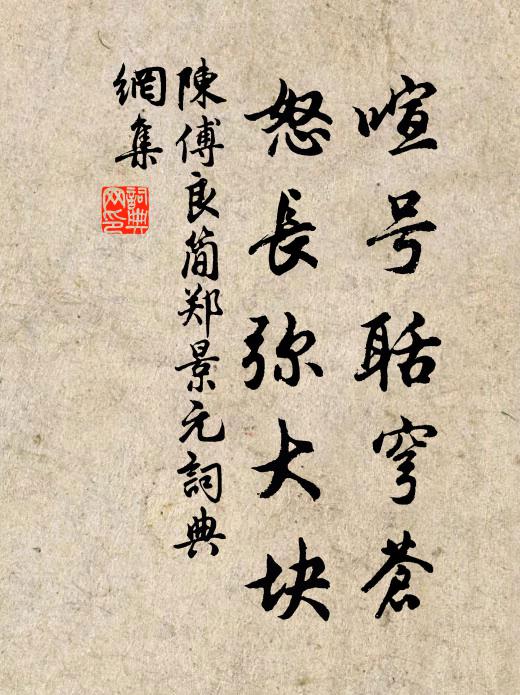 喧号聒穹苍
怒長弥大块
陳傅良简郑景元詞典
網集
詞典网印